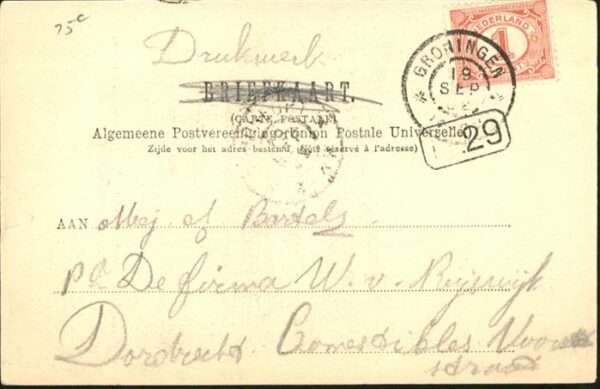 75c
Drukwerk
NEDERLAND
1
GRONINGEN
19
SEP
BRIEFKAART.
(CARTE POSTALE)
Algemeene Postvereeniging (Union Postale Universelle)
Zijde voor het adres bestemd. (Côté réservé à l'adresse)
29
AAN Mej of Bartels
pa De firma W. v. Rijswijk
Dordrecht Comestibles Voor
straat